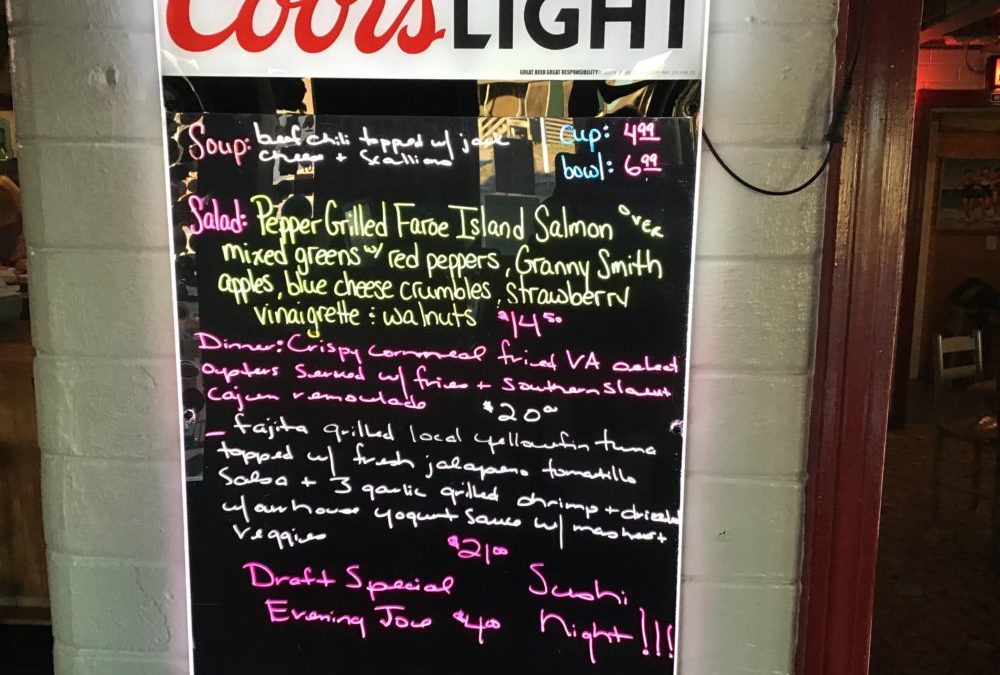 Coors LIGHT
GREAT BEER GREAT RESPONSIBILITY
Soup: beef chili topped w/ jack
cheese + scallions
Cup: 4.99
bowl: 6.99
Salad: Pepper Grilled Faroe Island Salmon over
mixed greens w/ red peppers, Granny Smith
apples, blue cheese crumbles, strawberry
vinaigrette : walnuts $14.50
Dinner: Crispy cornmeal fried VA select
oysters served w/ fries + southern slaw +
cajun remoulade $20.00
- fajita grilled local yellowfin tuna
topped w/ fresh jalapeno tomatillo
Salsa + 3 garlic grilled shrimp + drizzled
w/ our house yogurt sauce w/ mashers +
veggies
$21.00
Draft Special
Evening Joe $4.00
Sushi
Night!!!